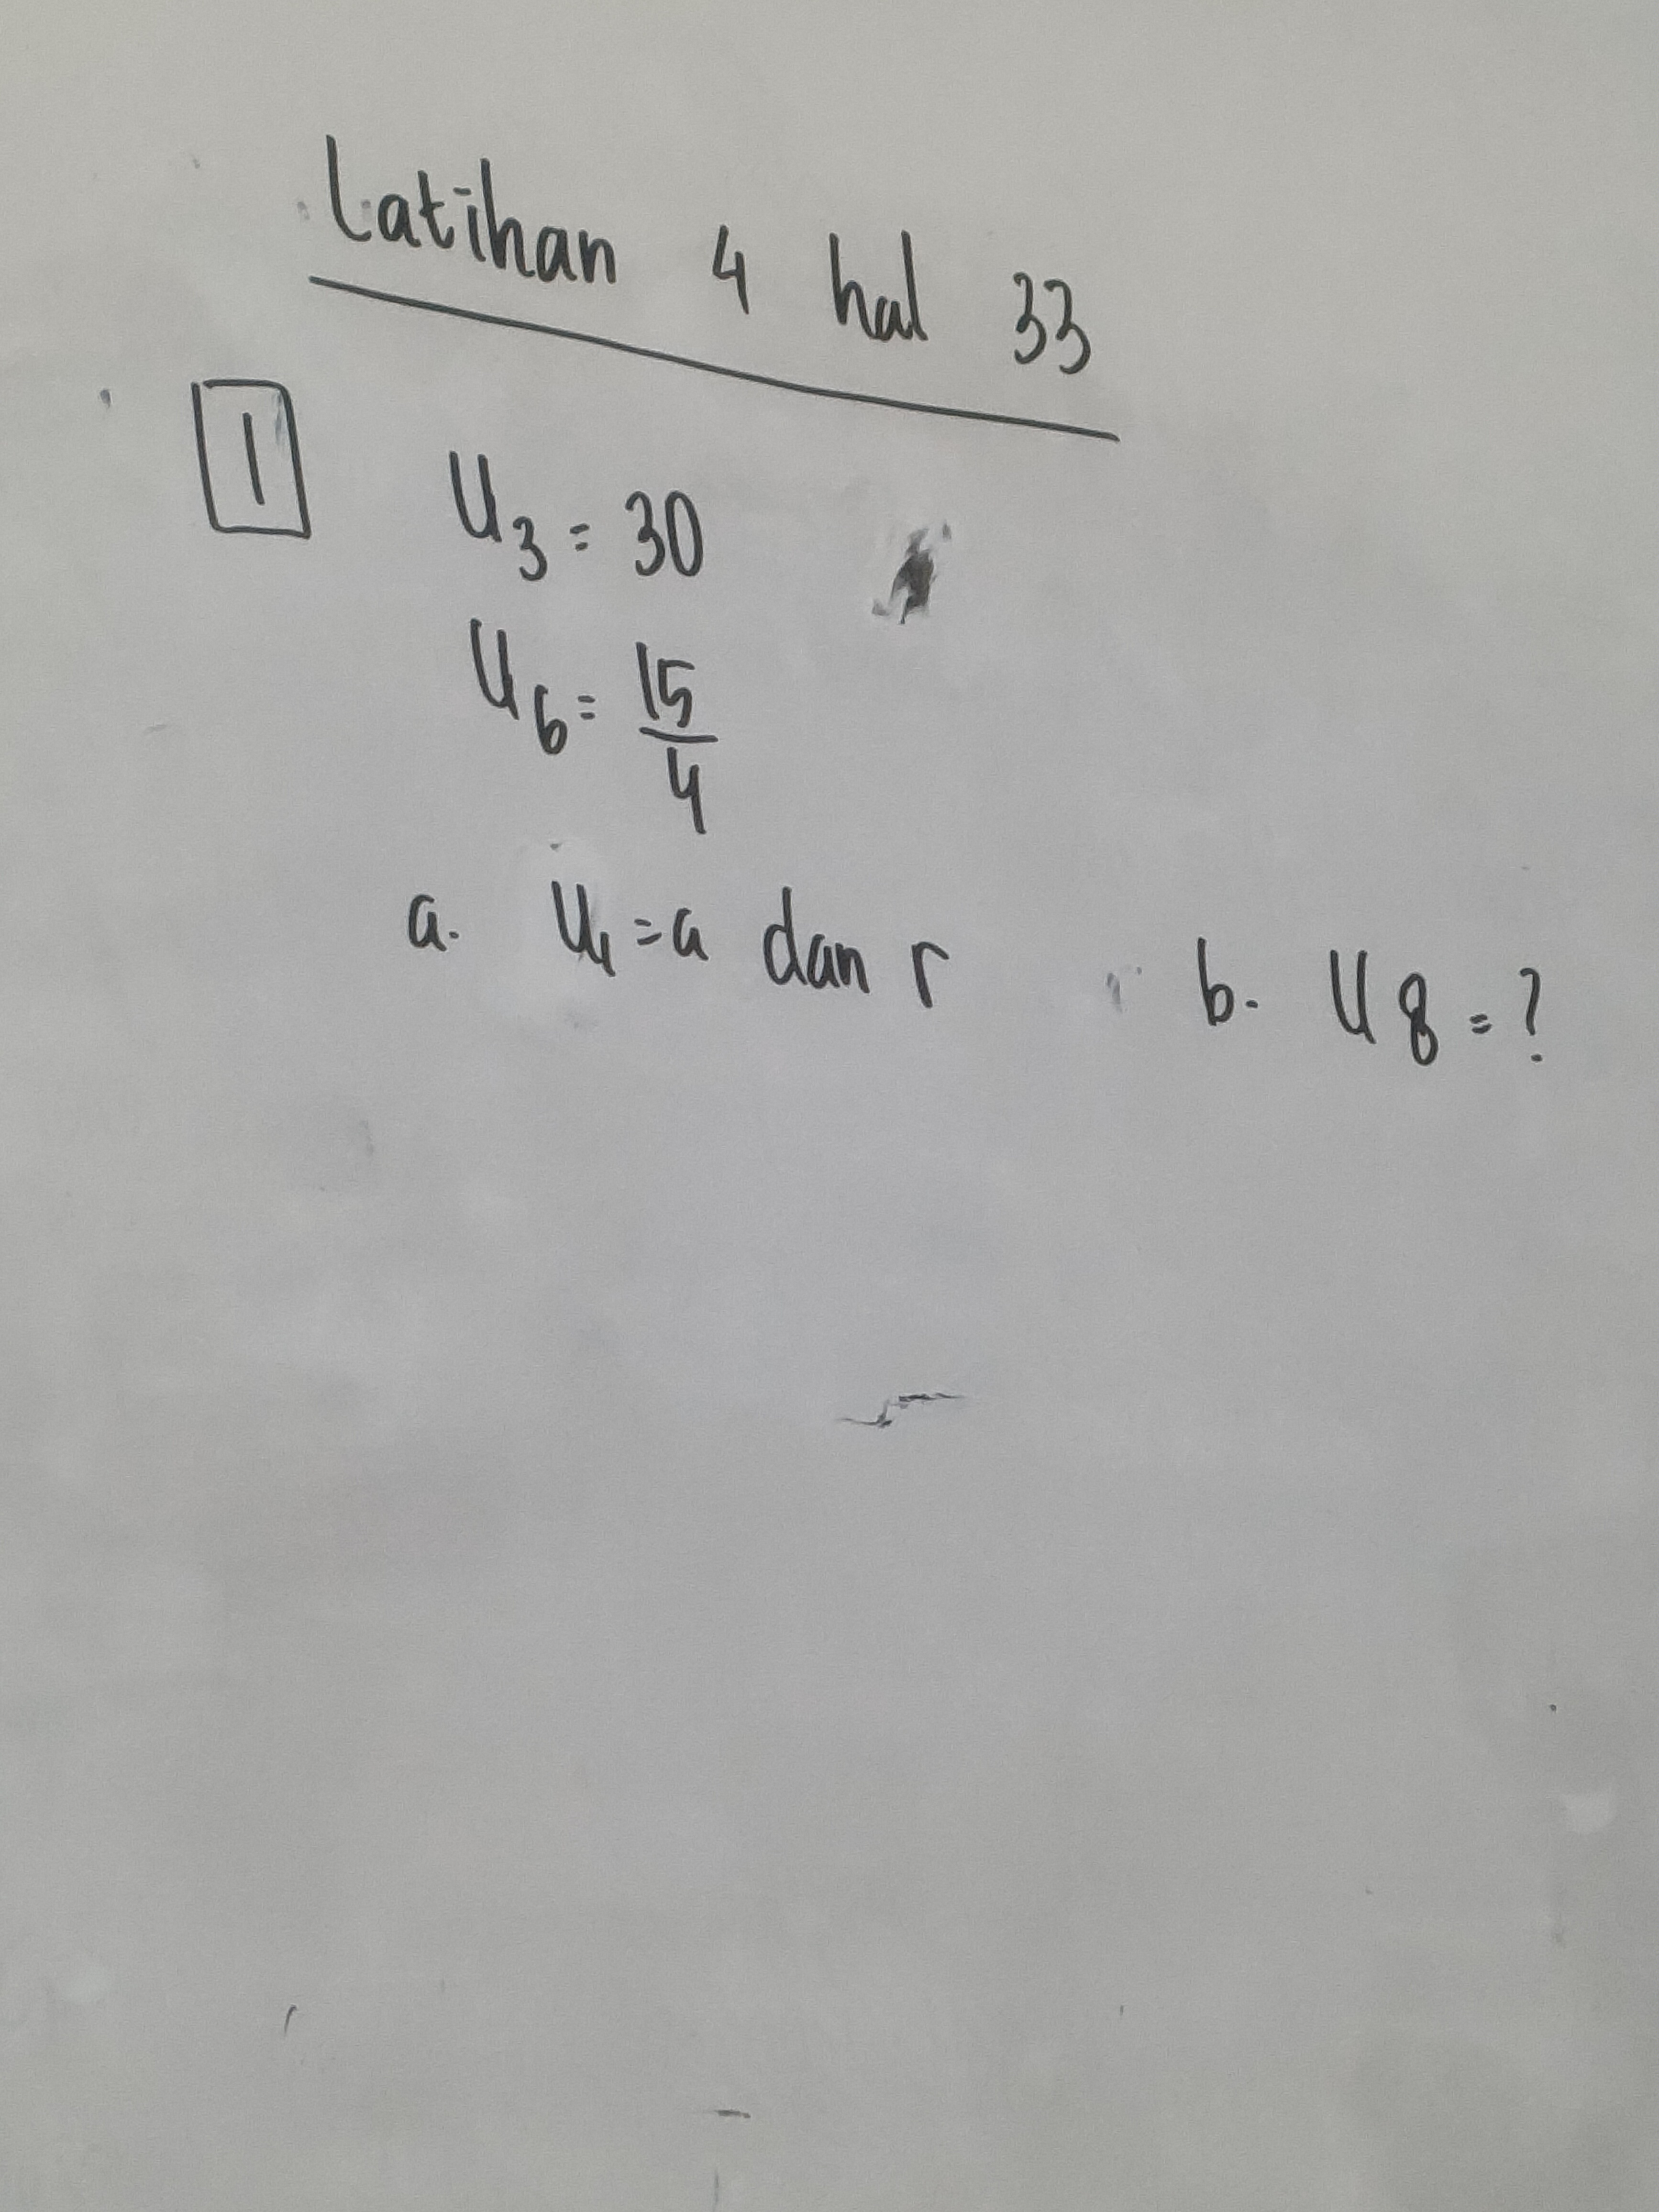 Latihan 4 hal 33
1 U₃ = 30
U₆ = 15/4
a. U₁ = a dan r b. U₈ = ?